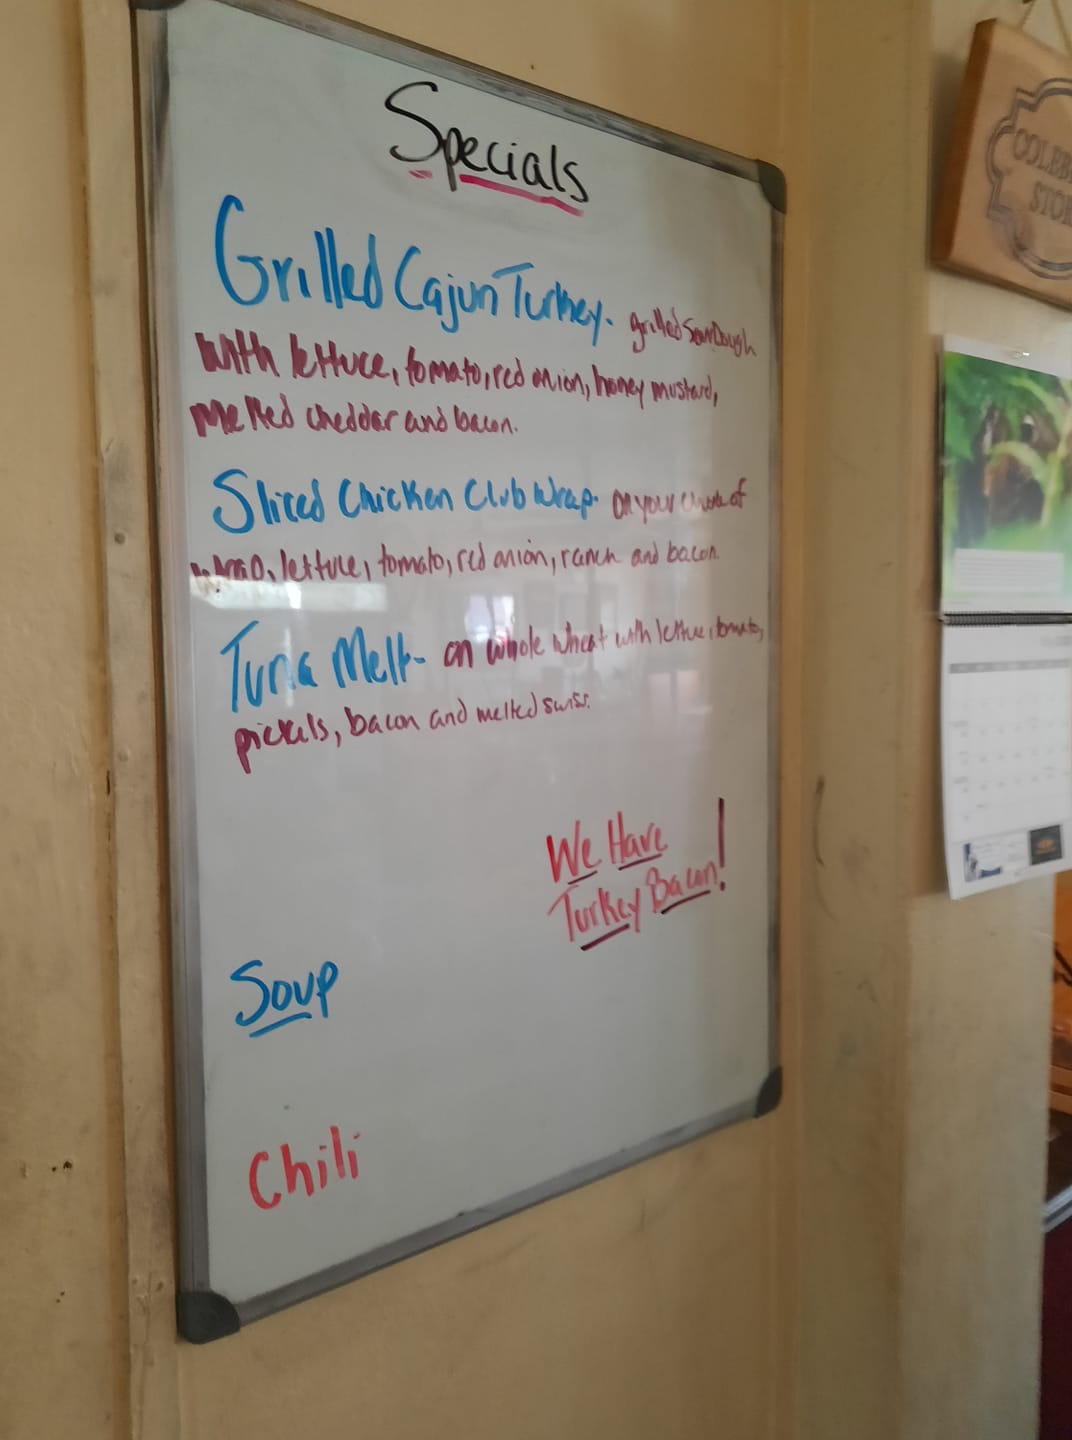 Specials
Grilled Cajun Turkey. grilled SourDough
with lettuce, tomato, red onion, honey mustard,
Melted cheddar and bacon.
Sliced Chicken Club Wrap. on your choice of
wrap, lettuce, tomato, red onion, ranch and bacon.
Tuna Melt- on whole wheat with lettuce, tomato,
pickels, bacon and melted swiss.
We Have
Turkey Bacon!
Soup
Chili